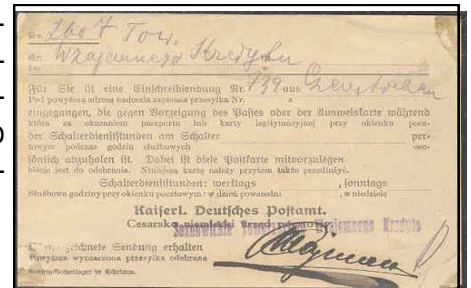 2607 Tow.
An Wzajemnego Kredytu
Für Sie ist eine Einschreibsendung Nr. 139 aus
Pod powyższą adresą nadeszła zapisana przesyłka Nr. z
eingegangen, die gegen Vorzeigung des Passes oder der Ausweiskarte während
która za okazaniem paszportu lub karty legitymacyjnej przy okienku pocz-
der Schalterdienststunden am Schalter per-
towym podczas godzin służbowych oso-
sönlich abzuholen ist. Dabei ist diese Postkarte mitvorzulegen
biście jest do odebrania. Niniejszą kartę należy przytem także przedłożyć.
Schalterdienststunden: werktags , sonntags
Służbowe godziny przy okienku pocztowym: w dzień powszedni , w niedziele
Kaiserl. Deutsches Postamt.
Cesarsko niemiecki Urząd pocztowy
Sosnowickie Towarzystwo Wzajemnego Kredytu
Sendung erhalten
Powyżej wyznaczoną przesyłkę odebrano